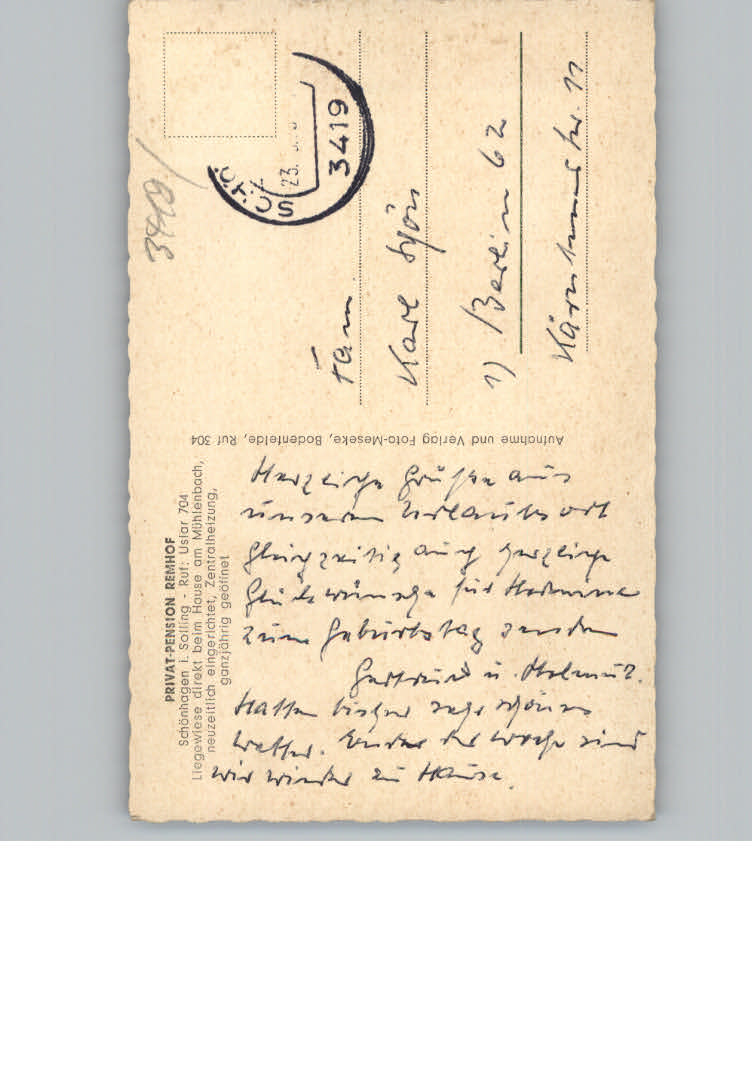 PRIVAT-PENSION REMHOF
Schönhagen i. Solling - Ruf: Uslar 704
Liegewiese direkt beim Hause am Mühlenbach,
neuzeitlich eingerichtet, Zentralheizung,
ganzjährig geöffnet
Herzliche Grüße aus
unserem Urlaubsort
gleichzeitig auch herzliche
Glückwünsche für
zum Geburtstag senden
Gertrud u. Helmut.
Hatten bisher sehr schönes
Wetter. Ende der Woche sind
wir wieder zu Hause.
Aufnahme und Verlag Foto-Meseke, Bodenfelde, Ruf 304
3419
23.
3419
Fam.
Karl
1) Berlin 62
Kärntener Str. 11